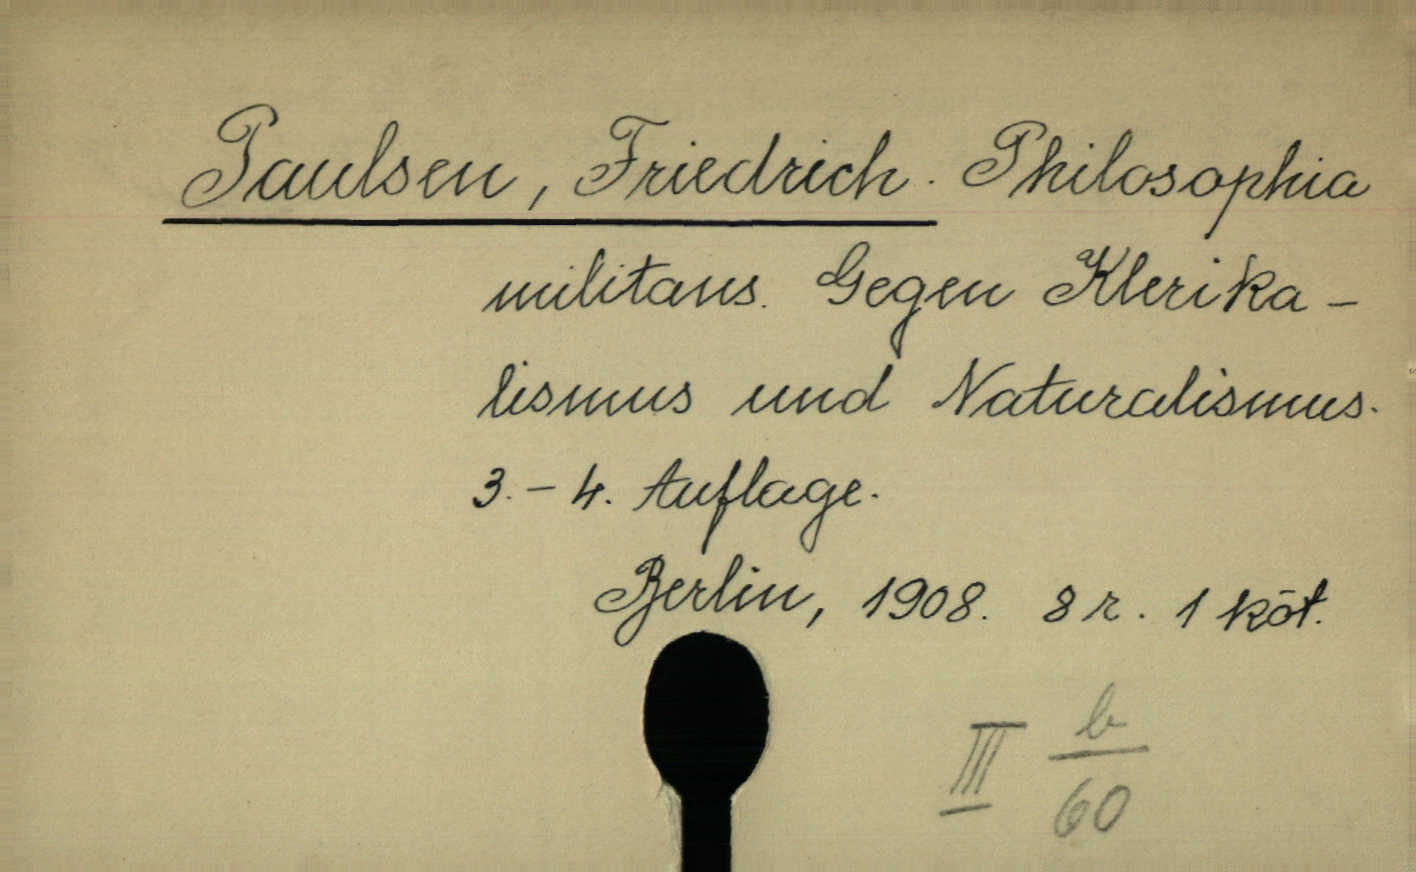 Paulsen, Friedrich. Philosophia
militans. Gegen Klerika-
lismus und Naturalismus.
3.-4. Auflage.
Berlin, 1908. 8 r. 1 köt.
III b/60